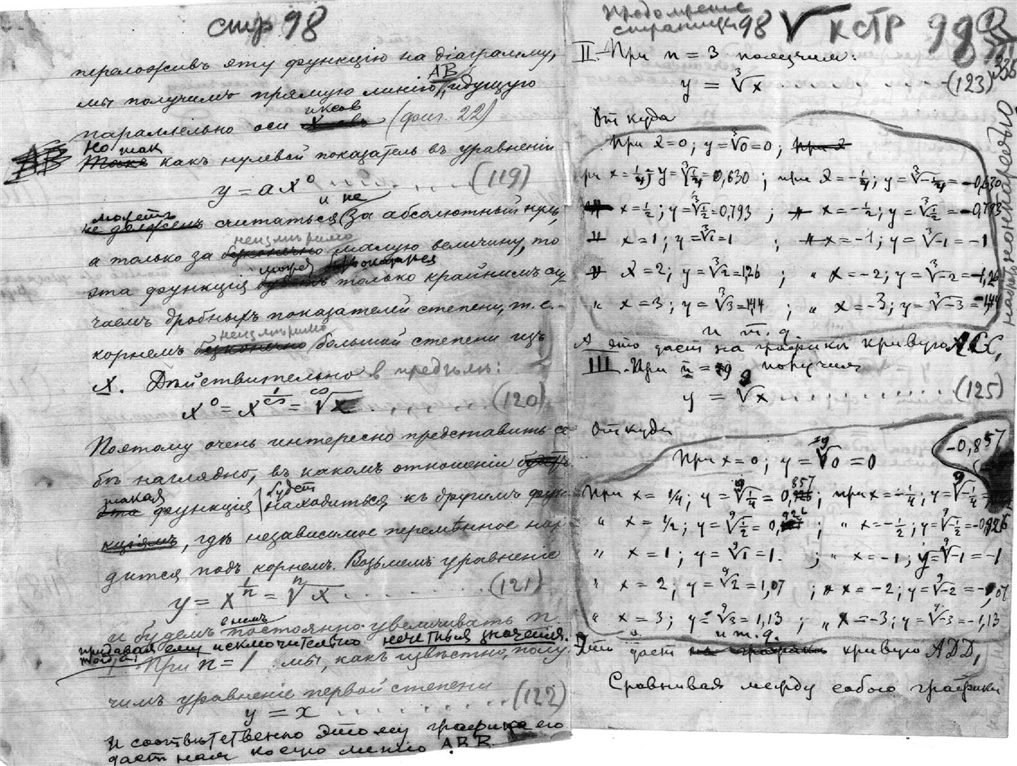 стр 98
переложивъ эту функцію на діаграмму,
AB
мы получимъ прямую линію, идущую
иксов
параллельно оси (фиг. 22)
Но так
какъ нулевой показатель въ уравненіи
y = ax⁰ ........ (119)
может и не
считаться за абсолютный нуль,
неизмѣримо
а только за малую величину, то
эта функція только крайнимъ слу-
чаемъ дробныхъ показателей степени, т. е.
неизмѣримо
корнемъ большой степени изъ
X. Дѣйствительно в предѣлѣ:
x⁰ = x^(1/∞) = ∞√x ........ (120)
Поэтому очень интересно представить се-
бѣ наглядно, въ какомъ отношеніи
такая будет
функція находиться къ другимъ функ-
ціямъ, гдѣ независимое перемѣнное нахо-
дится подъ корнемъ. Возьмемъ уравненіе
y = x^(1/n) = ⁿ√x ........ (121)
в немъ
и будемъ постоянно увеличивать n
придавая ему исключительно нечетныя значения.
При n = 1 мы, какъ извѣстно, полу-
чимъ уравненіе первой степени
y = x ........ (122)
И соотвѣтственно этому графика его
дает нам косую линію ABB
Продолжение
страницы 98 √ к стр 98
II. При n = 3 получим:
y = ³√x ........ (123)
Откуда
При x=0; y=³√0=0,
при x=1/4; y=³√1/4=0,630; при x=-1/4; y=³√-1/4=-0,630
" x=1/2; y=³√1/2=0,793; " x=-1/2; y=³√1/2=-0,793
" x=1; y=³√1=1; " x=-1; y=³√-1=-1
" x=2; y=³√2=1,26; " x=-2; y=³√-2=-1,26
" x=3; y=³√3=1,44; " x=-3; y=³√-3=-1,44
и т. д.
А это дает на графикѣ кривую ACC,
III. При n = 9 получим
y = ⁹√x ........ (125)
Откуда
При x=0; y=⁹√0=0
-0,857
857
При x=1/4; y=⁹√1/4=0, при x=-1/4; y=⁹√-1/4=
926
" x=1/2; y=⁹√1/2=0, " x=-1/2; y=⁹√1/2=-0,926
" x=1; y=⁹√1=1. ; " x=-1; y=⁹√-1=-1
" x=2; y=⁹√2=1,07 ; " x=-2; y=⁹√-2=-1,07
" x=3; y=⁹√3=1,13 ; " x=-3; y=⁹√-3=-1,13
и т. д.
дает кривую ADD,
Сравнивая между собою графики